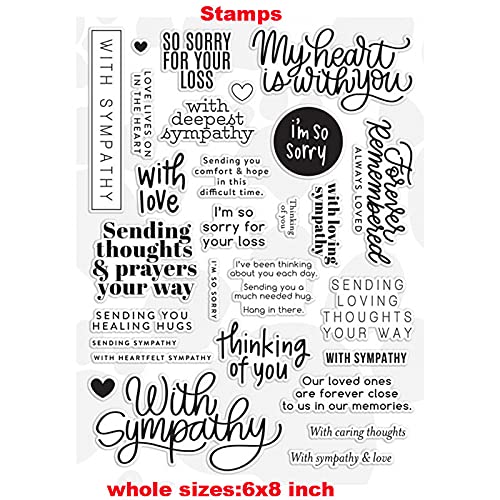 Stamps
WITH SYMPATHY
LOVE LIVES ON
IN THE HEART
SO SORRY
FOR YOUR
LOSS
My heart
is with you
with
deepest
sympathy
i'm so
sorry
Forever
Remembered
ALWAYS LOVED
with
love
Sending you
comfort & hope
in this
difficult time.
Thinking
of you
with loving
sympathy
I'm so
sorry for
your loss
Sending
thoughts
& prayers
your way
I'M SO SORRY
I've been thinking
about you each day.
Sending you a
much needed hug.
Hang in there.
SENDING
LOVING
THOUGHTS
YOUR WAY
SENDING YOU
HEALING HUGS
SENDING SYMPATHY
WITH HEARTFELT SYMPATHY
thinking
of you
WITH SYMPATHY
With
Sympathy
Our loved ones
are forever close
to us in our memories.
With caring thoughts
With sympathy & love
whole sizes:6x8 inch